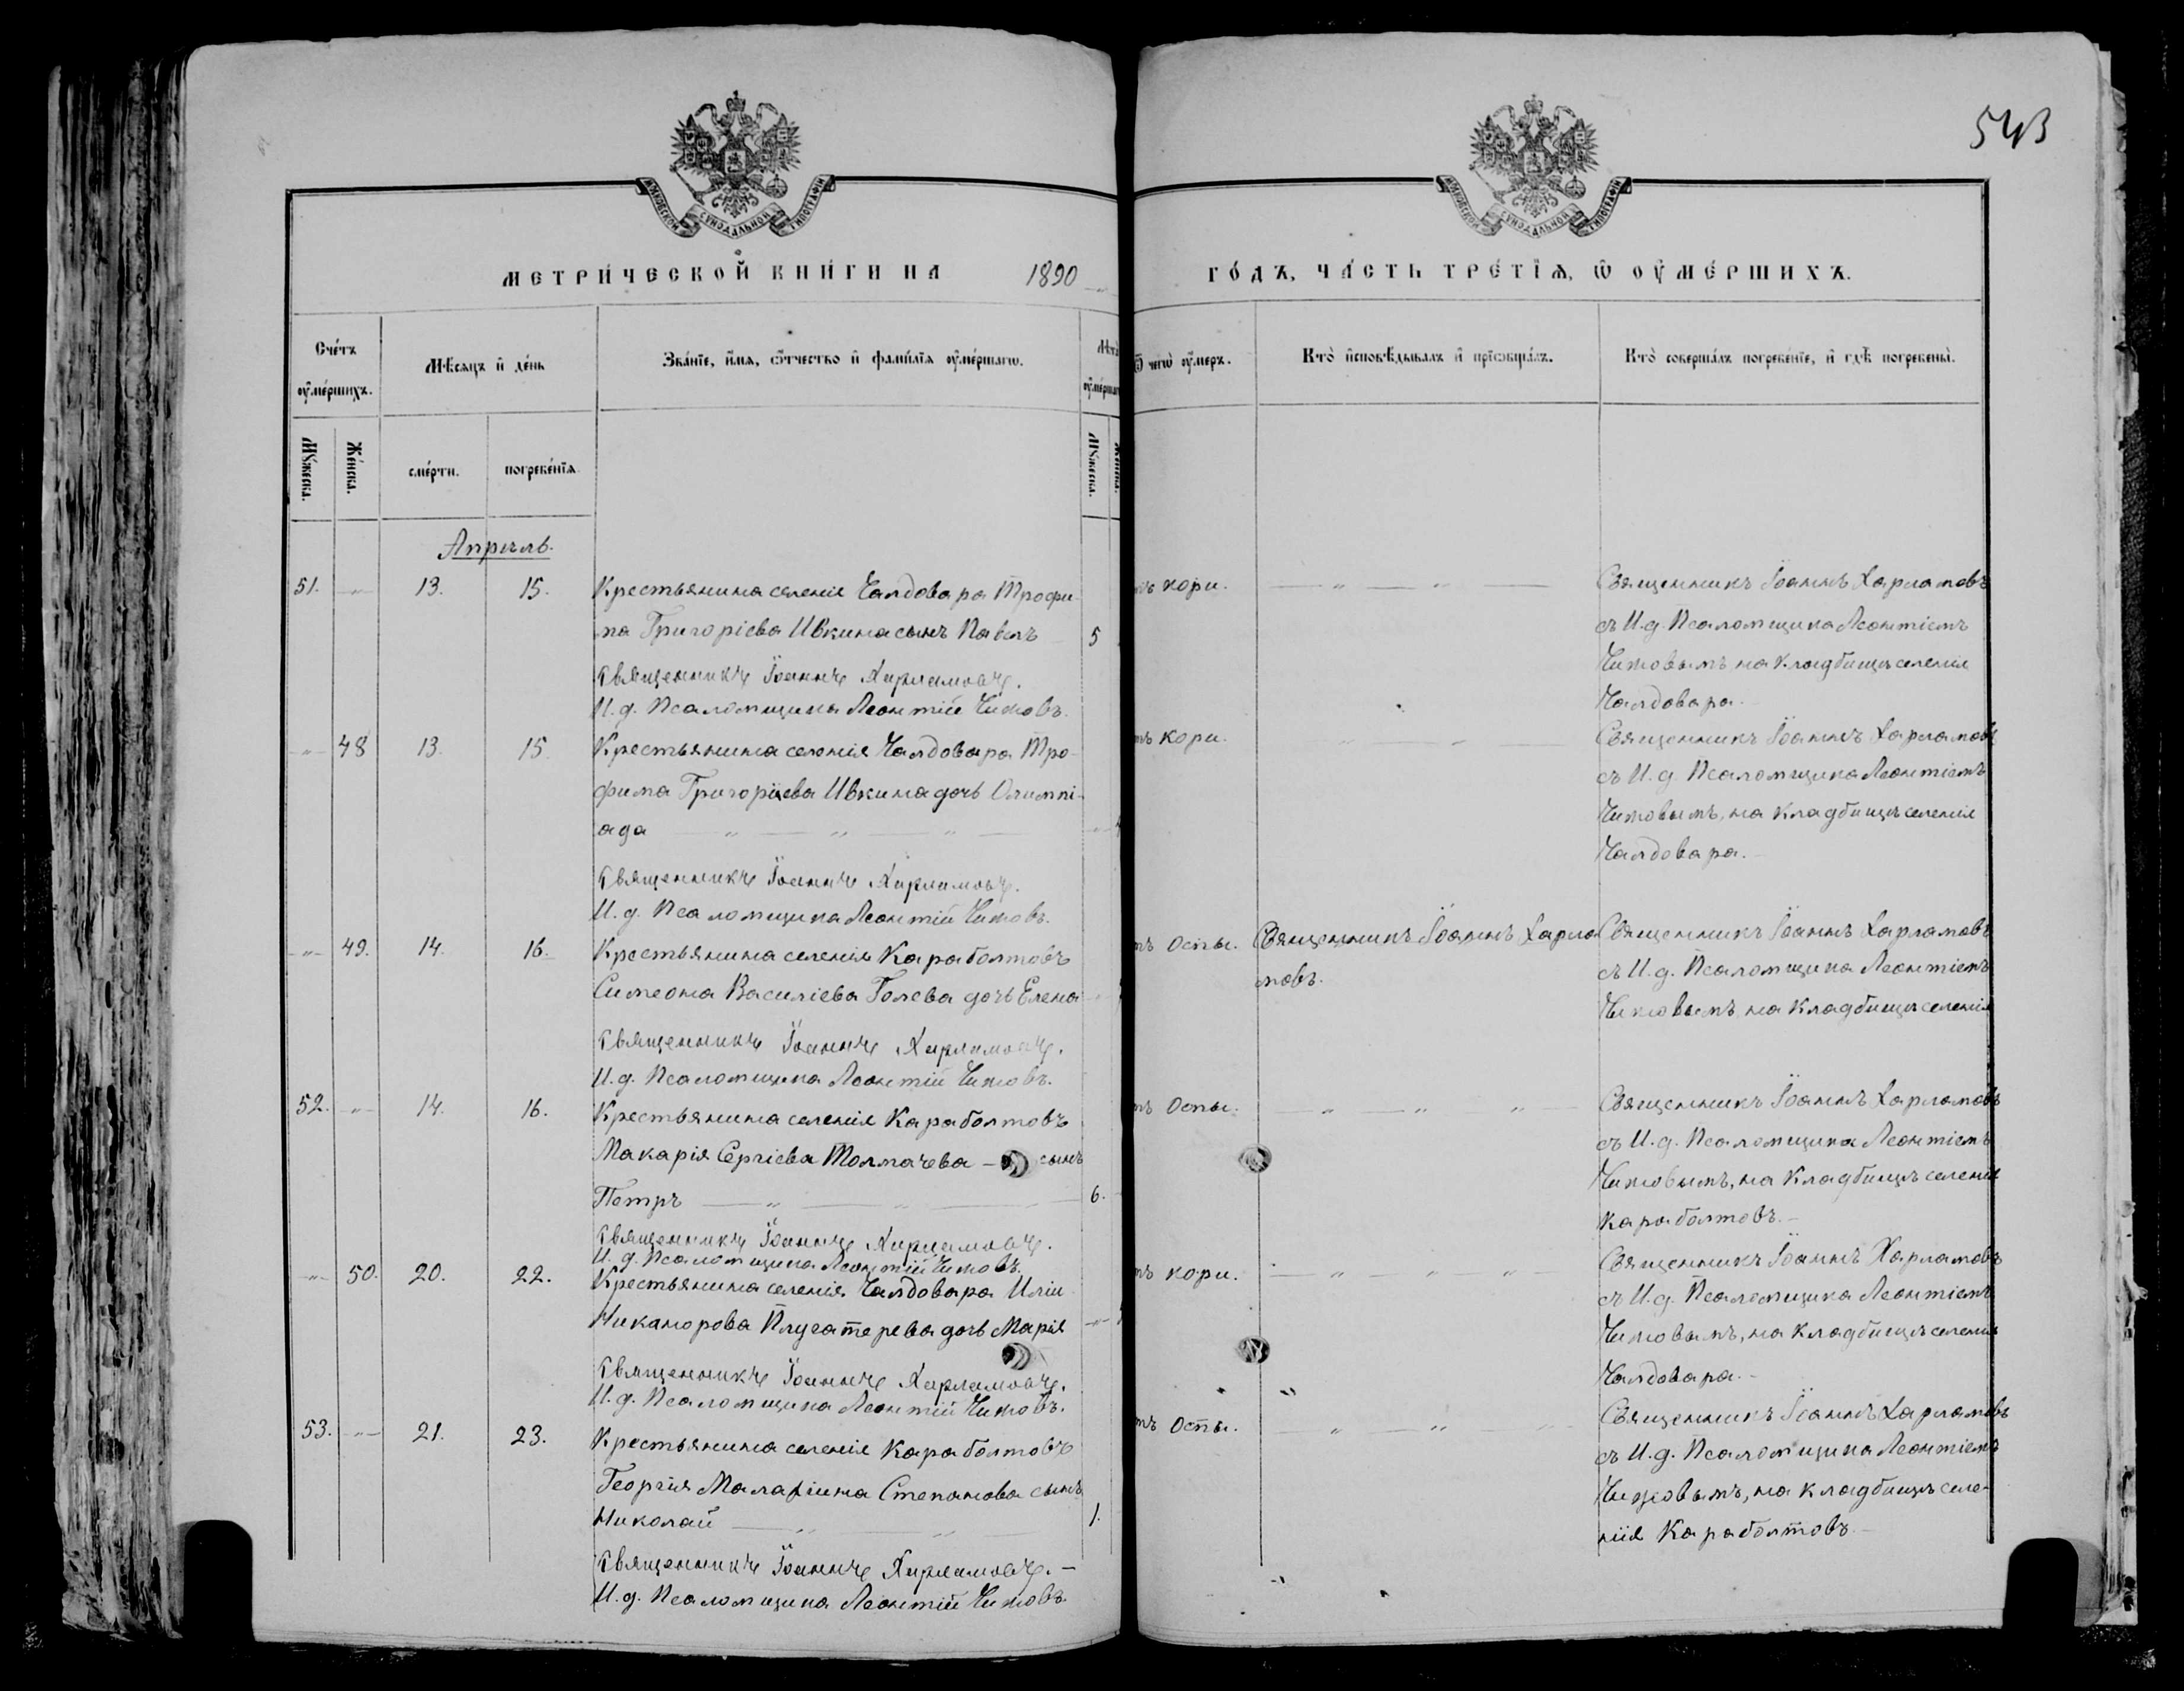 543
МОСКОВСКОЙ СУНОДАЛЬНОЙ ТИПОГРАФІИ
МОСКОВСКОЙ СУНОДАЛЬНОЙ ТИПОГРАФІИ
МЕТРИ́ЧЕСКОЙ КНИ́ГИ НА 1890
ГО́ДЪ, ЧА́СТЬ ТРЕ́ТІѦ, Ѿ ОУМЕ́РШИХЪ.
Сче́тъ оуме́ршихъ.
Мѣсяцъ и де́нь
Зва́ніе, и́мя, о́тчество и фами́лія оуме́ршагѡ.
Лѣта
оуме́ршаг
Ѿ чегѡ̀ оу́меръ.
Кто̀ исповѣ́дывалъ и пріѡбща́лъ.
Кто̀ соверша́лъ погребе́ніе, и гдѣ̀ погребены̀.
Му́жеска.
Же́нска.
сме́рти.
погребе́нія.
Му́жеска.
Апрѣль.
51. 13. 15. Крестьянина селенія Чалдовара Трофи-
ма Григоріева Ивкина сынъ Павелъ 5
Священникъ Іоаннъ Харламовъ.
И. д. Псаломщика Леонтій Чижовъ.
кори.
Священникъ Іоаннъ Харламовъ
съ И. д. Псаломщика Леонтіемъ
Чижовымъ на кладбищѣ селенія
Чалдовара.
48 13. 15. Крестьянина селенія Чалдовара Тро-
фима Григоріева Ивкина дочь Олимпі-
ада
Священникъ Іоаннъ Харламовъ.
И. д. Псаломщика Леонтій Чижовъ.
кори.
Священникъ Іоаннъ Харламовъ
съ И. д. Псаломщика Леонтіемъ
Чижовымъ, на кладбищѣ селенія
Чалдовара.
49. 14. 16. Крестьянина селенія Караболтовъ
Симеона Василіева Голева дочь Елена
Священникъ Іоаннъ Харламовъ.
И. д. Псаломщика Леонтій Чижовъ.
Оспы.
Священникъ Іоаннъ Харла
мовъ.
Священникъ Іоаннъ Харламовъ
съ И. д. Псаломщика Леонтіемъ
Чижовымъ, на кладбищѣ селенія
52. 14. 16. Крестьянина селенія Караболтовъ
Макарія Сергіева Толмачева — сынъ
Петръ 6.
Священникъ Іоаннъ Харламовъ.
И. д. Псаломщика Леонтій Чижовъ.
Оспы.
Священникъ Іоаннъ Харламовъ
съ И. д. Псаломщика Леонтіемъ
Чижовымъ, на кладбищѣ селенія
Караболтовъ.
50. 20. 22. Крестьянина селенія Чалдовара Иліи
Никанорова Плугатерева дочь Марія
Священникъ Іоаннъ Харламовъ.
И. д. Псаломщика Леонтій Чижовъ.
кори.
Священникъ Іоаннъ Харламовъ
съ И. д. Псаломщика Леонтіемъ
Чижовымъ, на кладбищѣ селенія
Чалдовара.
53. 21. 23. Крестьянина селенія Караболтовъ
Георгія Степанова сынъ
Николай 1.
Священникъ Іоаннъ Харламовъ.
И. д. Псаломщика Леонтій Чижовъ.
Оспы.
Священникъ Іоаннъ Харламовъ
съ И. д. Псаломщика Леонтіемъ
Чижовымъ, на кладбищѣ селе-
нія Караболтовъ.